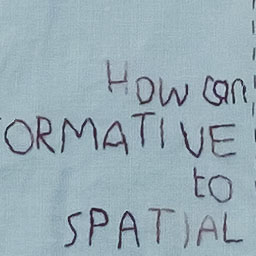 How can
ORMATIVE
to
SPATIAL